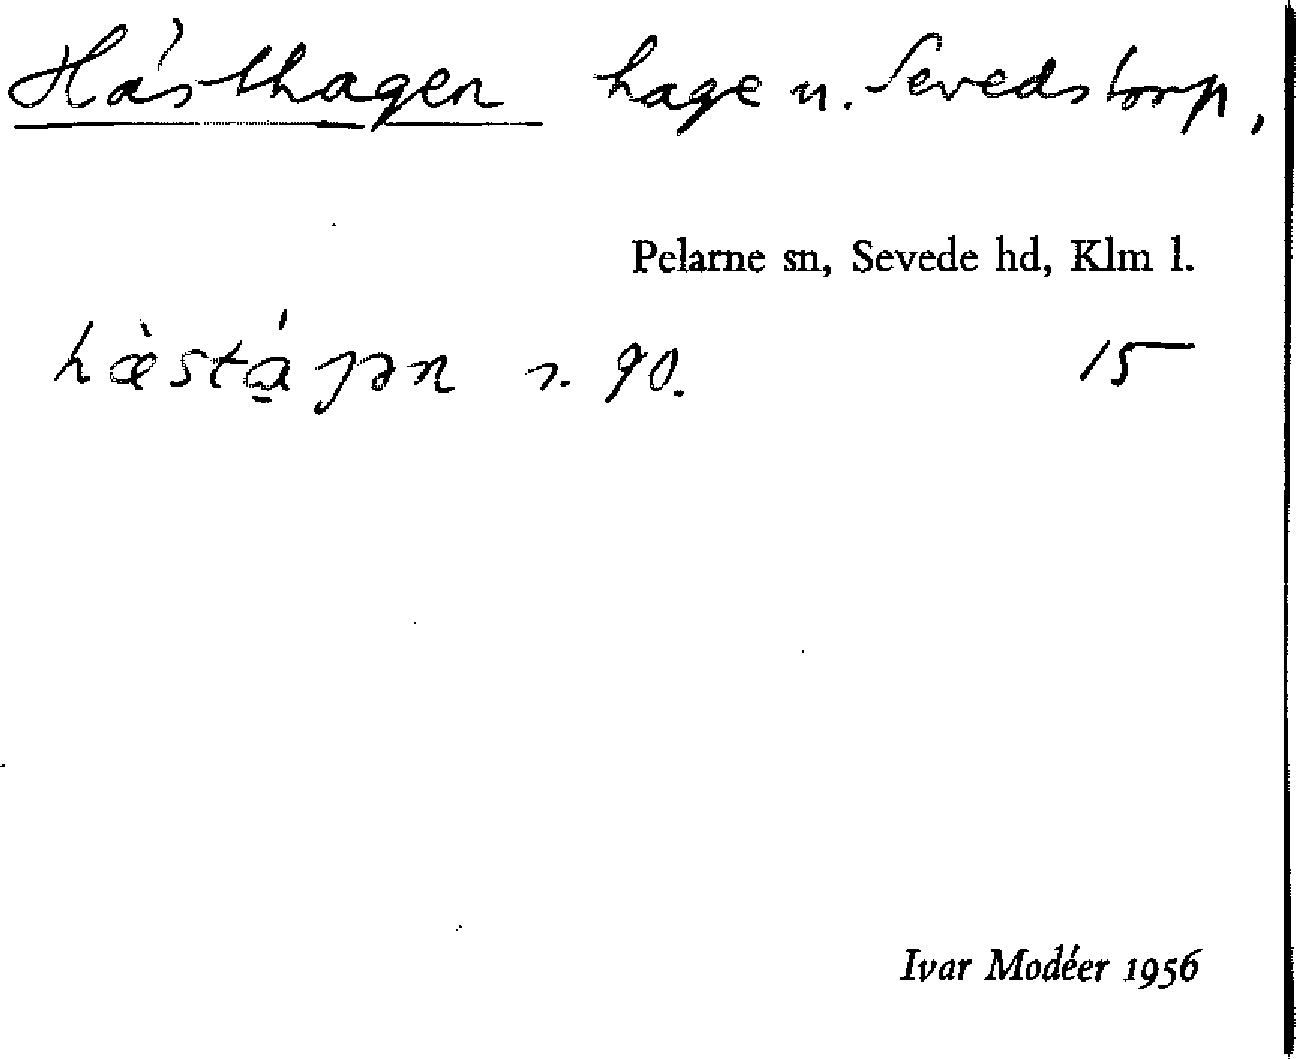 Hästhagen hage u. Sevedstorp,
Pelarne sn, Sevede hd, Klm l.
hæ̀stá̱ɡən s. 90. 15
Ivar Modéer 1956